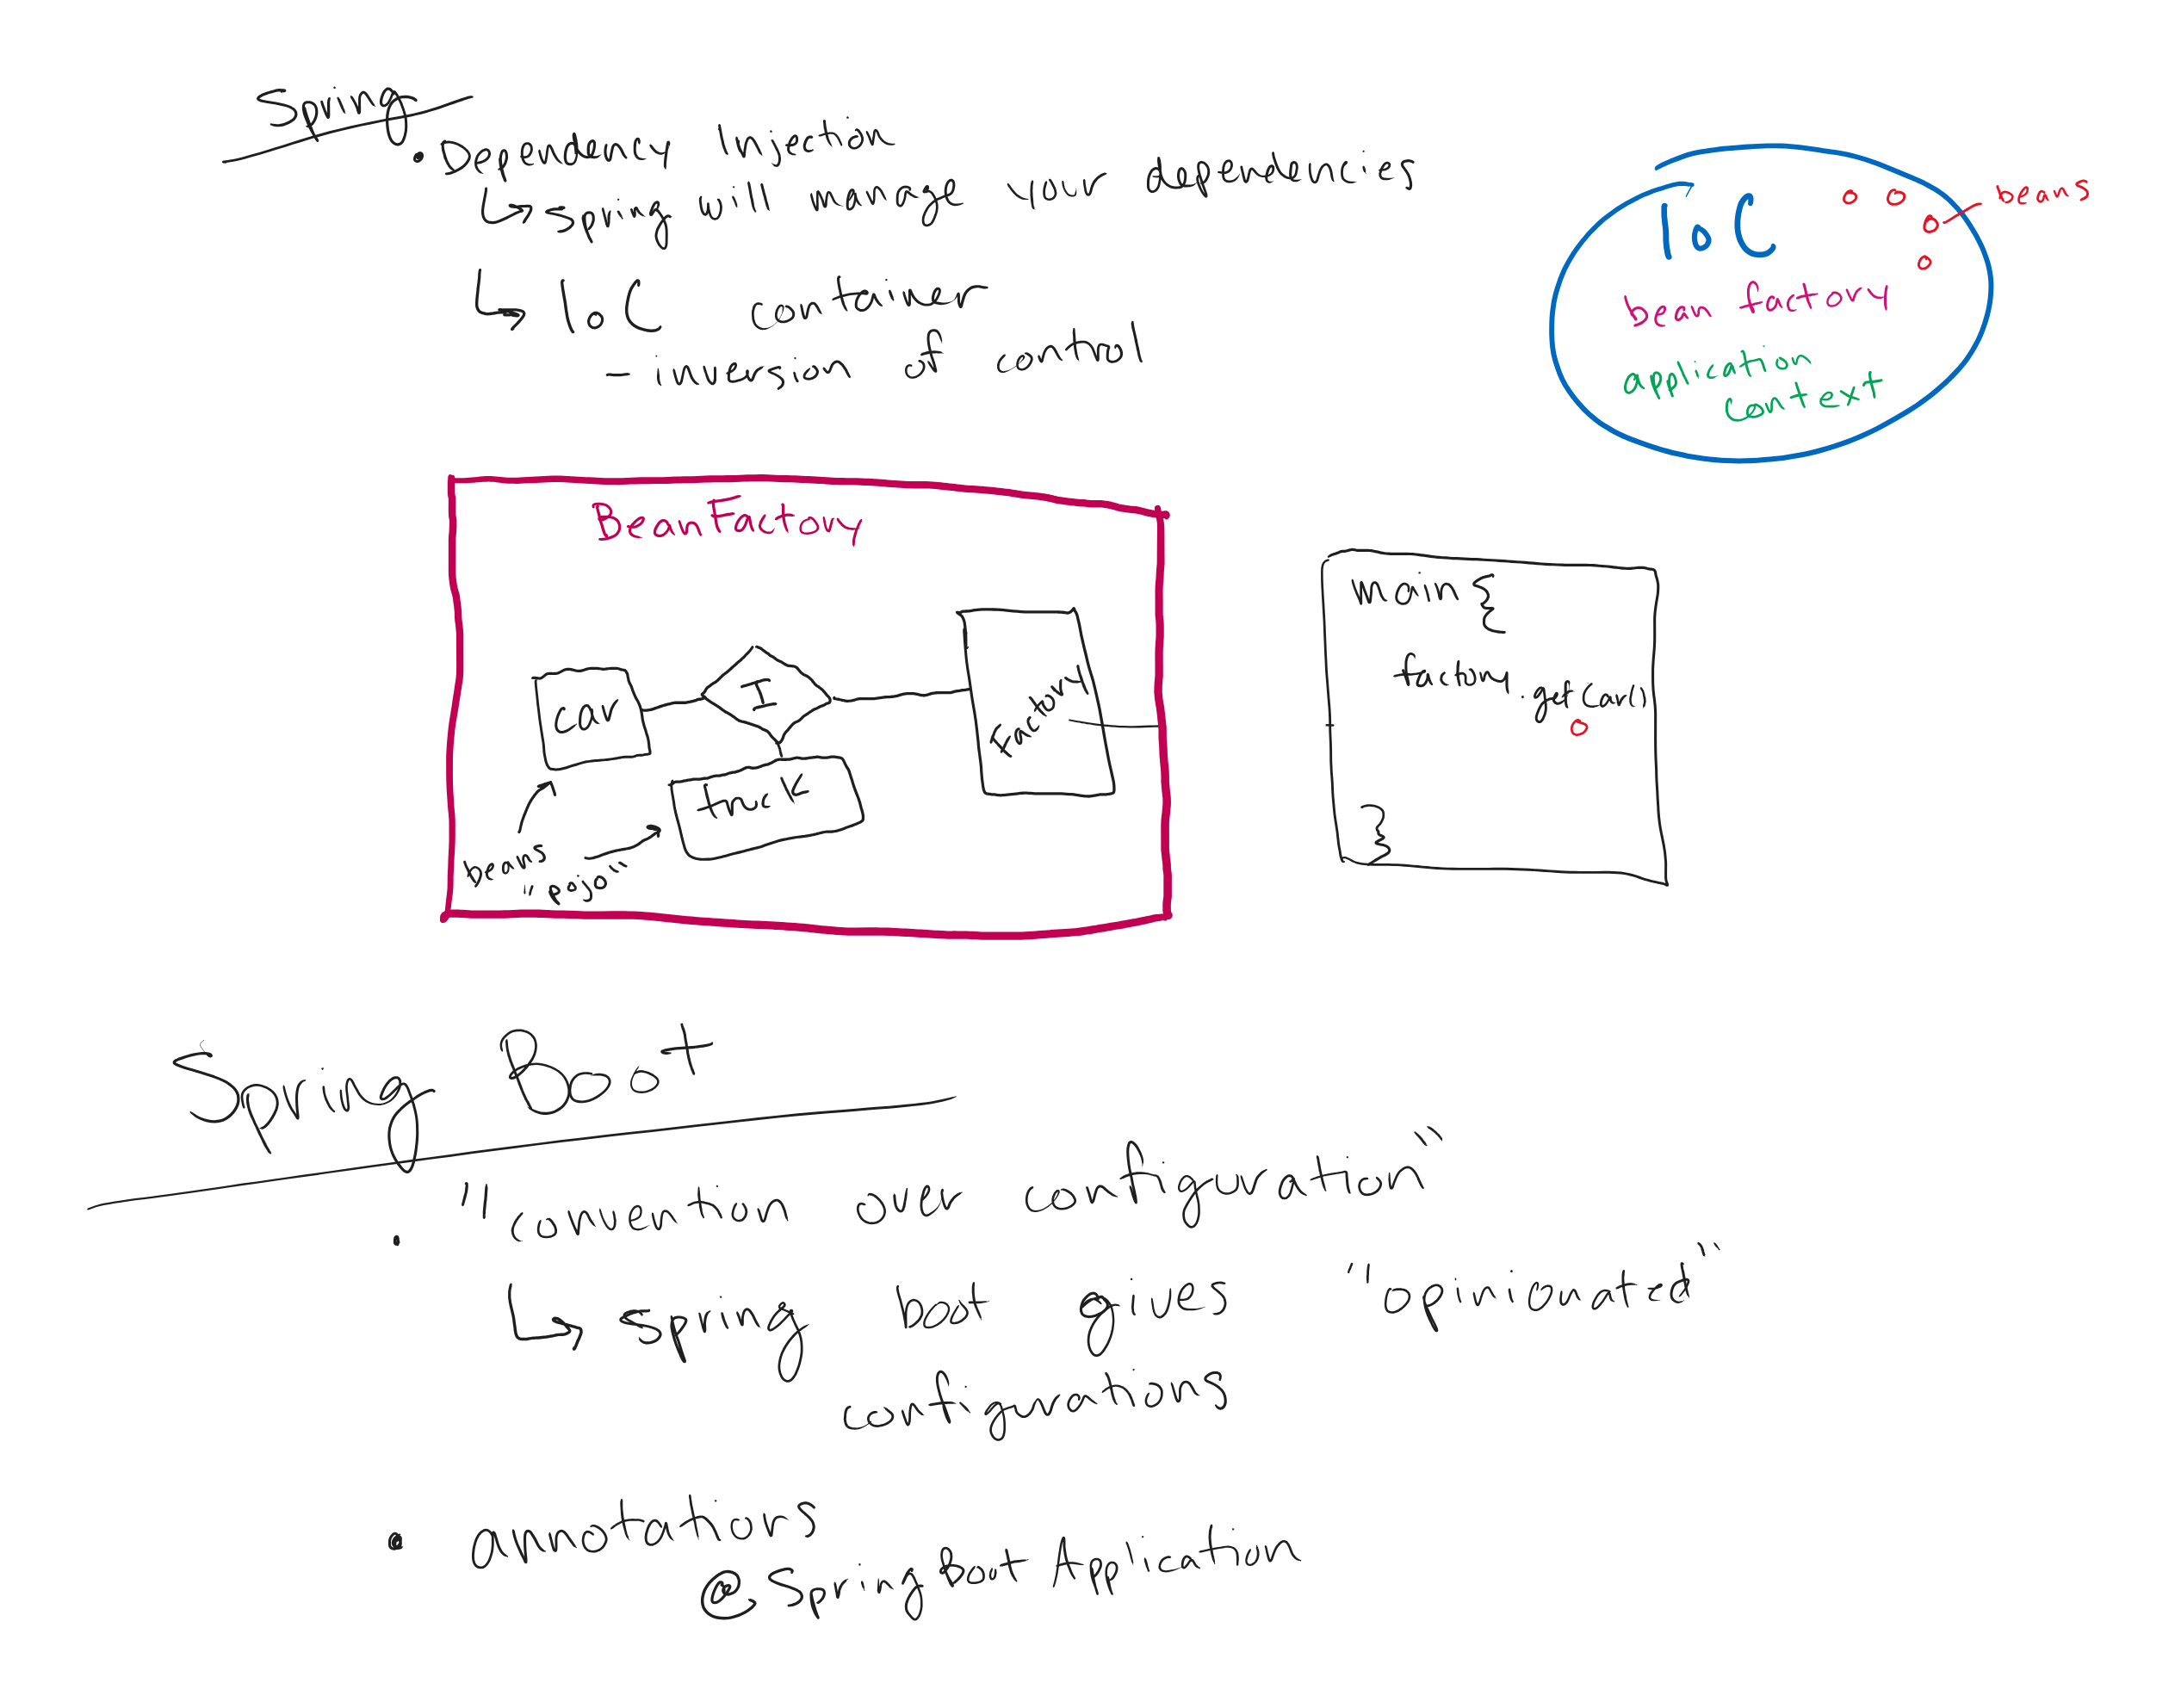 Spring
• Dependency Injection
↳ spring will manage your dependencies
↳ IoC container
- inversion of control
IoC
beans
bean factory
application
context
BeanFactory
Car
I
Factory
truck
beans
"pojo"
main{
factory.getCar()
}
Spring Boot
• "convention over configuration"
↳ spring boot gives "opinionated"
configurations
• annotations
@SpringBootApplication